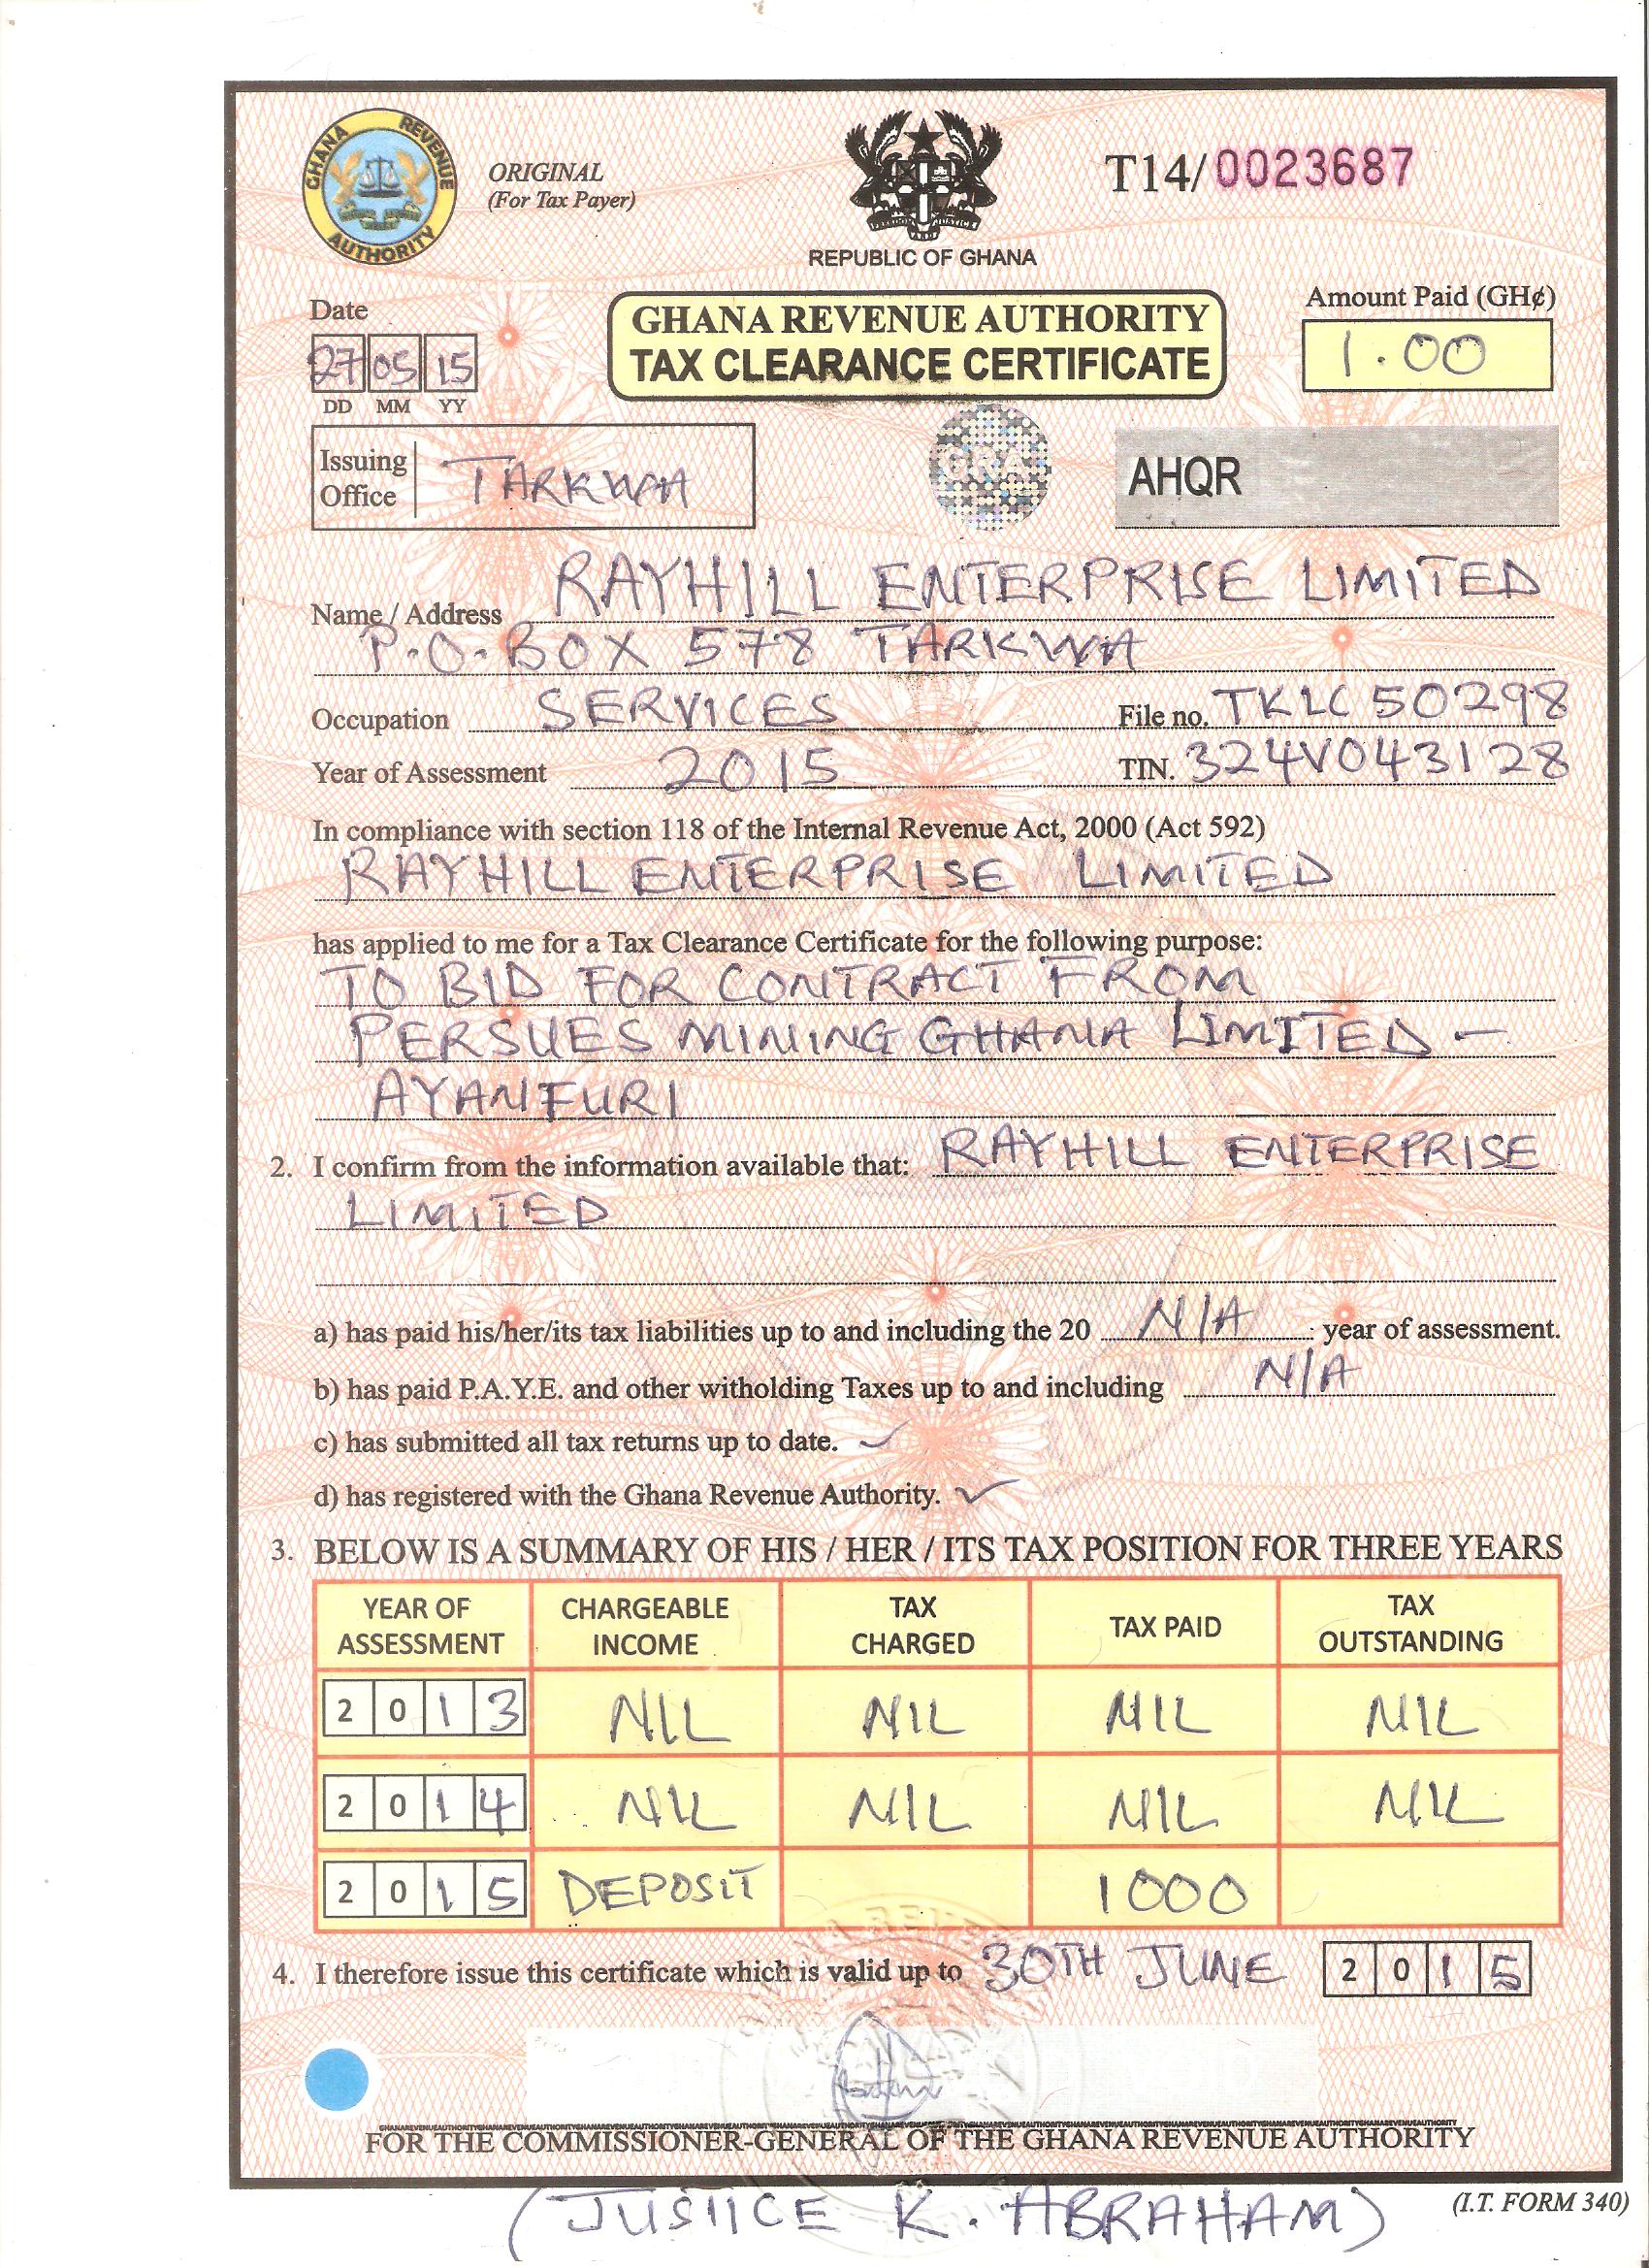 GHANA REVENUE AUTHORITY
ORIGINAL
(For Tax Payer)
FREEDOM AND JUSTICE
REPUBLIC OF GHANA
T14/0023687
Date
27 05 15
DD MM YY
GHANA REVENUE AUTHORITY
TAX CLEARANCE CERTIFICATE
Amount Paid (GH¢)
1.00
Issuing Office TARKWA
GRA
AHQR
Name / Address RAYHILL ENTERPRISE LIMITED
P.O.BOX 578 TARKWA
Occupation SERVICES File no. TKLC 50298
Year of Assessment 2015 TIN. 324V043128
In compliance with section 118 of the Internal Revenue Act, 2000 (Act 592)
RAYHILL ENTERPRISE LIMITED
has applied to me for a Tax Clearance Certificate for the following purpose:
TO BID FOR CONTRACT FROM
PERSUES MINING GHANA LIMITED -
AYANFURI
2. I confirm from the information available that: RAYHILL ENTERPRISE
LIMITED
a) has paid his/her/its tax liabilities up to and including the 20 N/A year of assessment.
b) has paid P.A.Y.E. and other witholding Taxes up to and including N/A
c) has submitted all tax returns up to date. ✓
d) has registered with the Ghana Revenue Authority. ✓
3. BELOW IS A SUMMARY OF HIS / HER / ITS TAX POSITION FOR THREE YEARS
YEAR OF ASSESSMENT CHARGEABLE INCOME TAX CHARGED TAX PAID TAX OUTSTANDING
2013 NIL NIL NIL NIL
2014 NIL NIL NIL NIL
2015 DEPOSIT 1000
4. I therefore issue this certificate which is valid up to 30TH JUNE 2015
FOR THE COMMISSIONER-GENERAL OF THE GHANA REVENUE AUTHORITY
(JUSTICE K. ABRAHAM)
(I.T. FORM 340)